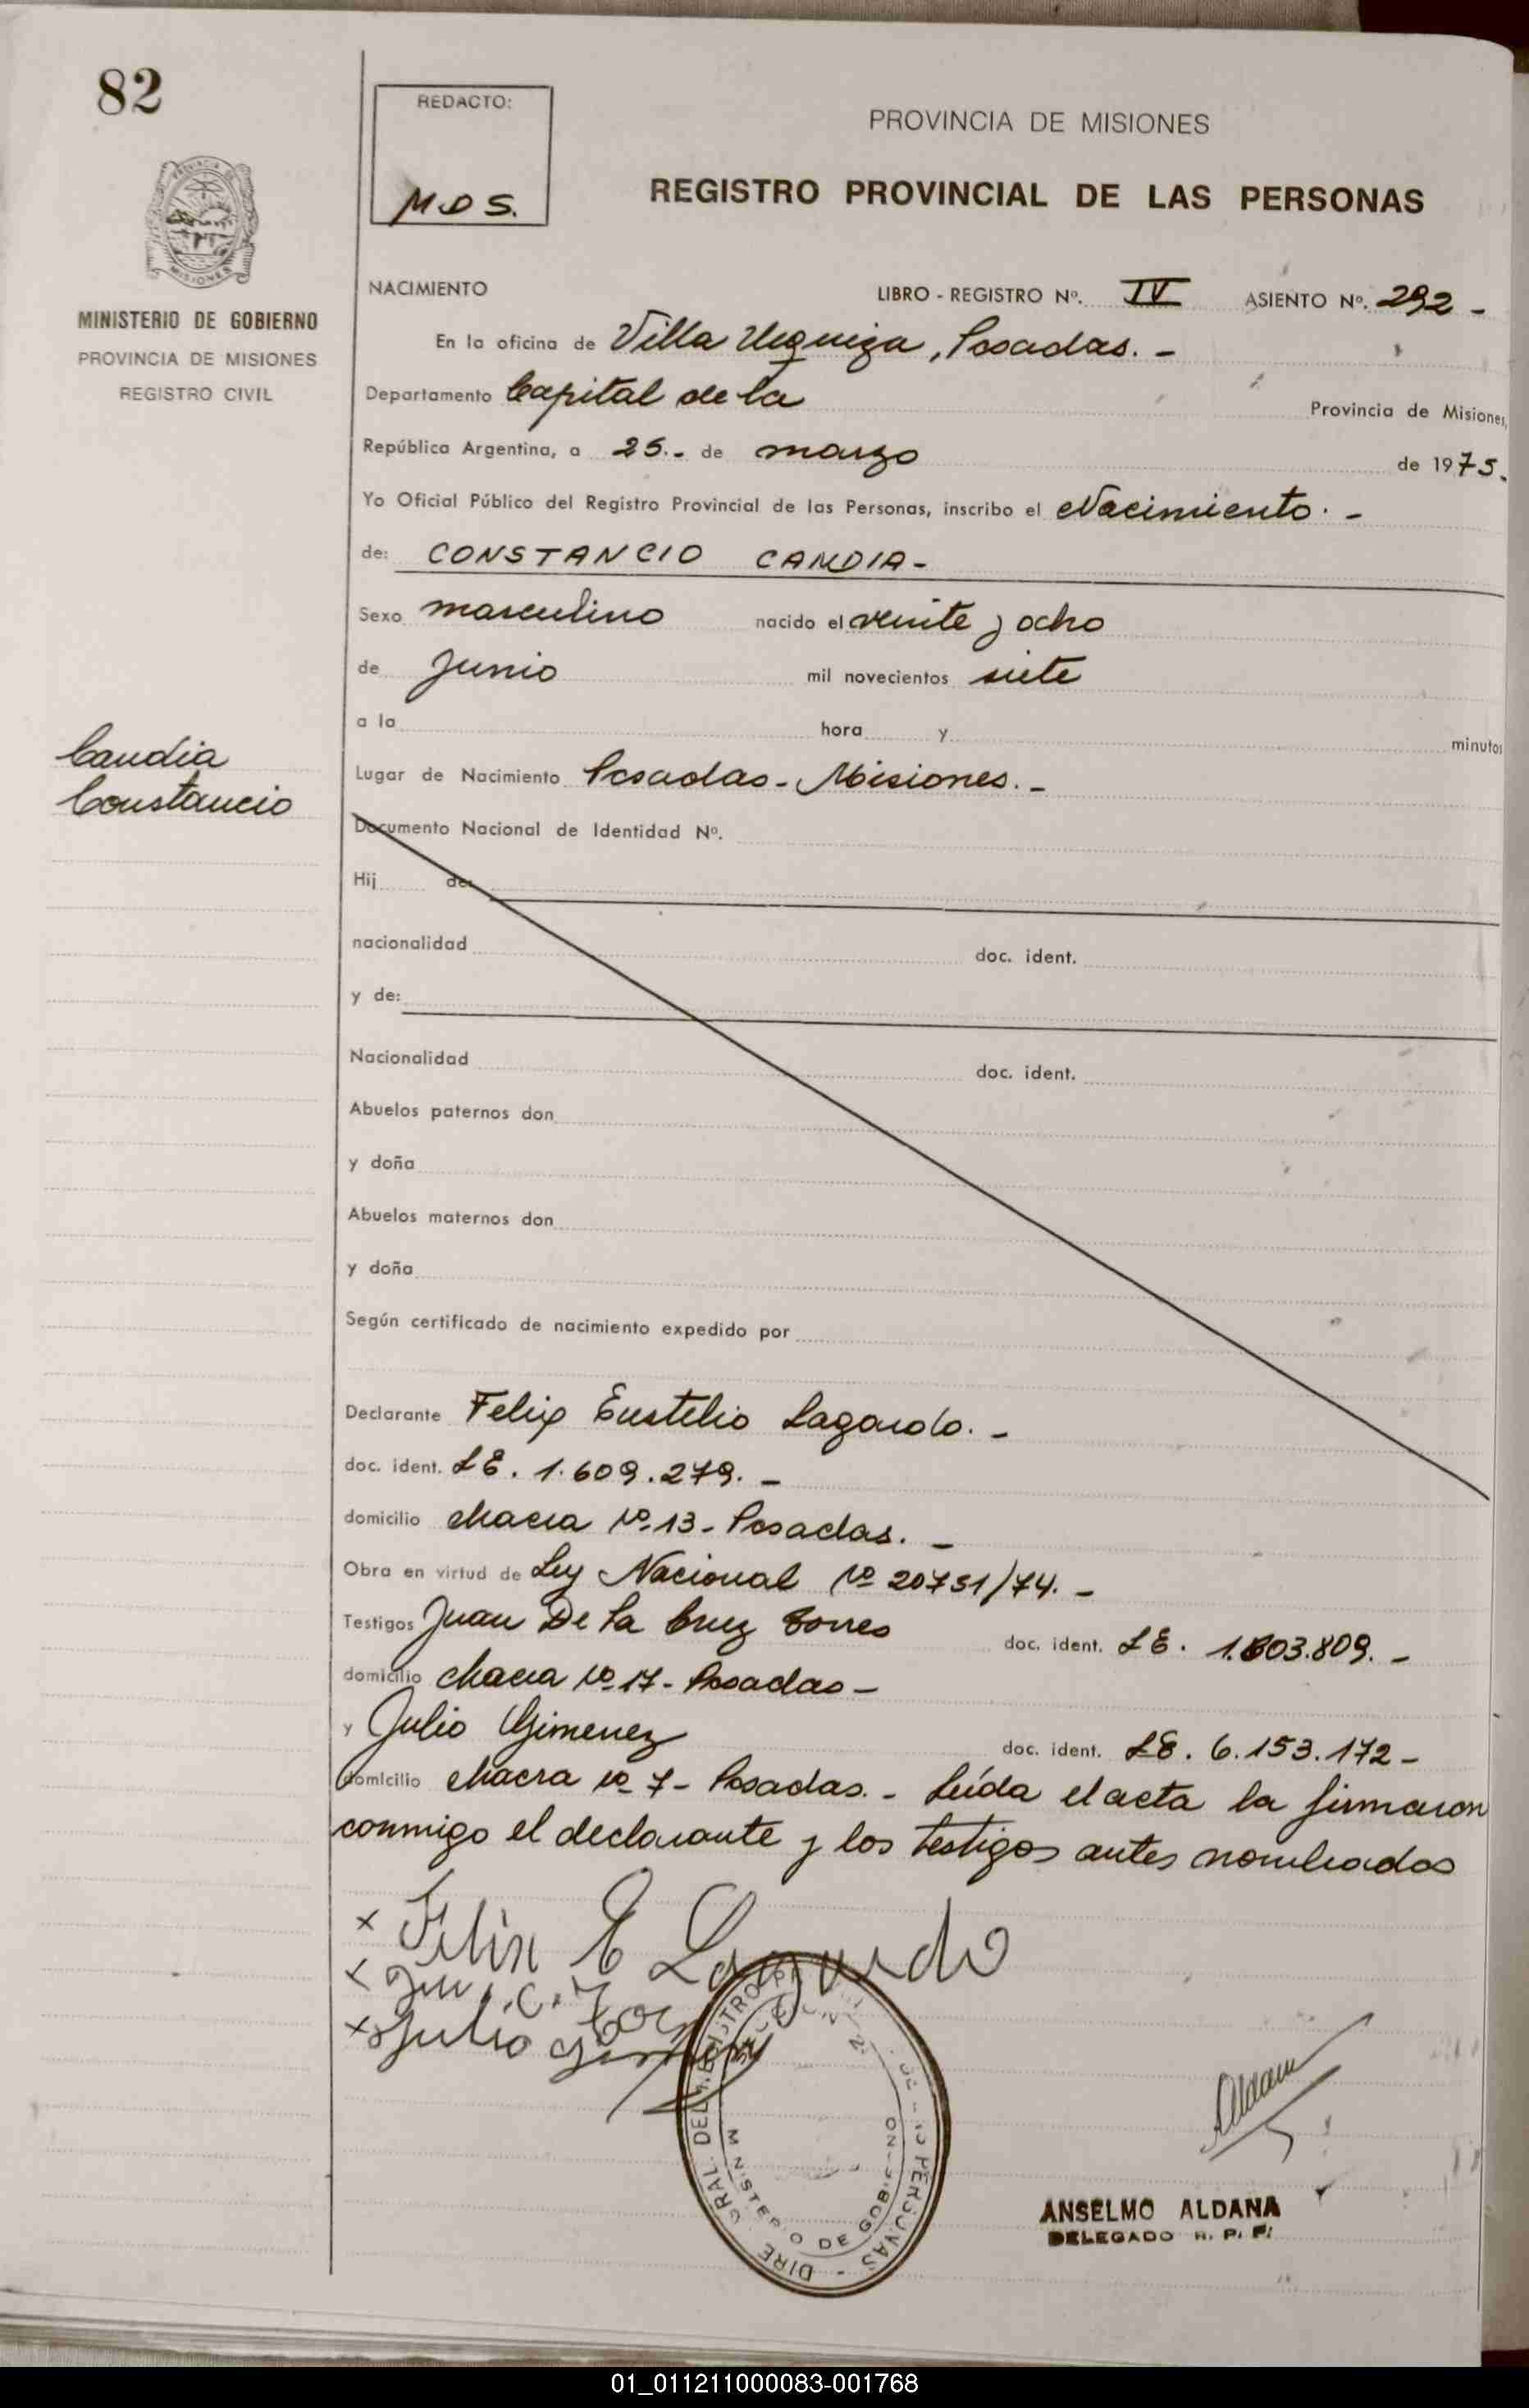 82
REDACTO:
M.D.S.
PROVINCIA DE MISIONES
REGISTRO PROVINCIAL DE LAS PERSONAS
MINISTERIO DE GOBIERNO
PROVINCIA DE MISIONES
REGISTRO CIVIL
NACIMIENTO LIBRO - REGISTRO Nº. IV ASIENTO Nº. 292 -
En la oficina de Villa Urquiza, Posadas. -
Departamento Capital de la Provincia de Misiones,
República Argentina, a 25.- de marzo de 1975.
Yo Oficial Público del Registro Provincial de las Personas, inscribo el Nacimiento. -
de: CONSTANCIO CANDIA -
Sexo masculino nacido el veinte y ocho
de Junio mil novecientos siete
a la hora y minutos
Candia
Constancio
Lugar de Nacimiento Posadas - Misiones. -
Documento Nacional de Identidad Nº.
Hij de:
nacionalidad doc. ident.
y de:
Nacionalidad doc. ident.
Abuelos paternos don
y doña
Abuelos maternos don
y doña
Según certificado de nacimiento expedido por
Declarante Felix Eustelio Lagardo. -
doc. ident. LE. 1.609.279. -
domicilio chacra Nº 13 - Posadas. -
Obra en virtud de Ley Nacional Nº 20751/74. -
Testigos Juan De La Cruz Torres doc. ident. LE. 1.603.809. -
domicilio chacra Nº 17 - Posadas -
y Julio Gimenez doc. ident. LE. 6.153.172 -
domicilio chacra Nº 7 - Posadas. - Leída el acta la firmaron
conmigo el declarante y los testigos antes nombrados
x Felix E Lagardo
x Julio Gimenez
DIRE GRAL. DEL REGISTRO PERSONAS
MINISTERIO DE GOBIERNO
Aldana
ANSELMO ALDANA
DELEGADO R. P. P.
01_011211000083-001768